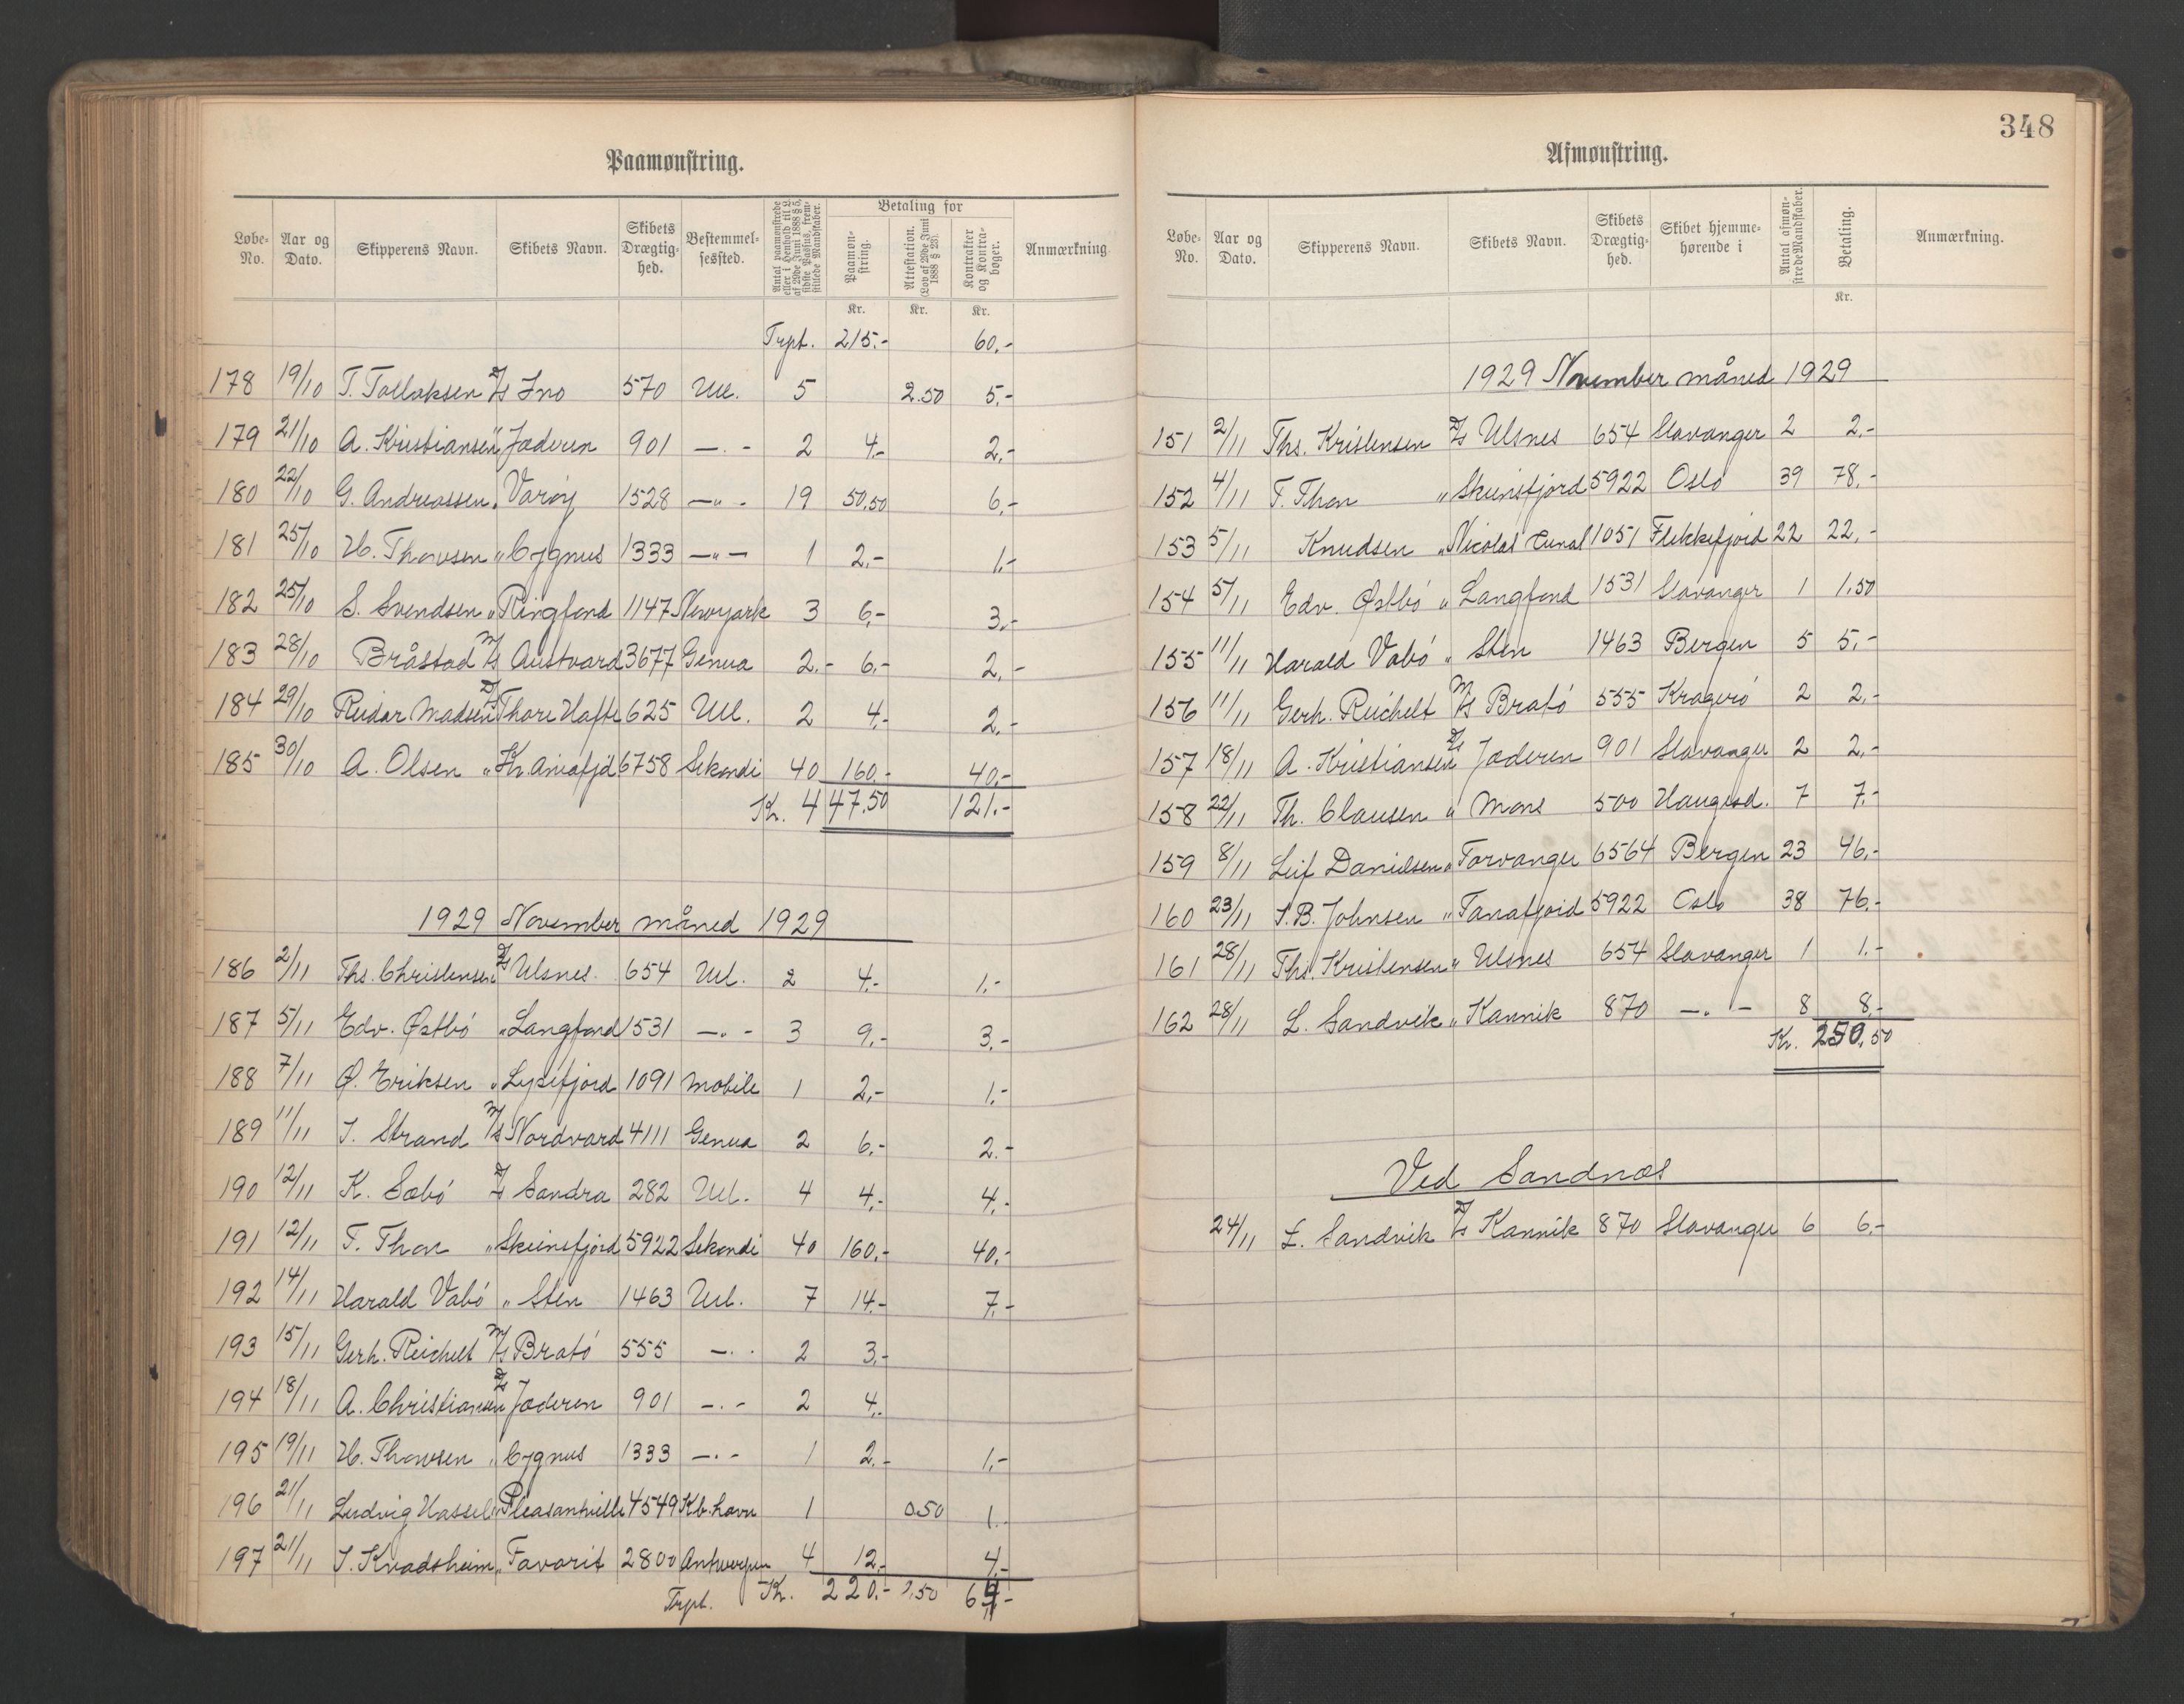 Paamønstring.
Løbe-No. Aar og Dato. Skipperens Navn. Skibets Navn. Skibets Drægtighed. Bestemmelsessted. Antal paamønstrede eller i Henhold til L. af 29de Juni 1888 § 5, sidste Passus, fremstillede Mandskaber. Betaling for Paamønstring. Attestation. (Lov af 29de Juni 1888 § 23). Kontrakter og Kontrabøger. Anmærkning
Kr. Kr. Kr.
Trpt. 215.- 60.-
178 19/10 T. Tollaksen D/S Ino 570 Utl. 5 2.50 5.-
179 21/10 A. Kristiansen " Jæderen 901 —"- 2 4.- 2.-
180 22/10 G. Andreassen " Varøy 1528 —"- 19 50.50 6.-
181 25/10 H. Thovsen " Cygnus 1333 —"— 1 2.- 1.-
182 25/10 S. Svendsen " Ringfond 1147 Newyork 3 6.- 3.-
183 28/10 Bråstad M/S Austvard 3677 Genua 2.- 6.- 2.-
184 29/10 Reidar Madsen D/S Thore Hafte 625 Utl. 2 4.- 2.-
185 30/10 A. Olsen " 6758 Sekondi 40 160.- 40.-
Kr. 447.50 121.-
1929 November måned 1929
186 2/11 Ths. Christensen D/S Ulsnes. 654 Utl. 2 4.- 1.-
187 5/11 Edv. Østbö " Langfond 1531 —"- 3 9.- 3.-
188 7/11 Ø. Eriksen " Lysefjord 1091 Mobile 1 2.- 1.-
189 11/11 J. Strand M/S Nordvard 4111 Genua 2 6.- 2.-
190 12/11 K. Sæbö D/S Sandra 282 Utl. 4 4.- 4.-
191 12/11 F. Thon " Skiensfjord 5922 Sekondi 40 160.- 40.-
192 14/11 Harald Vabö " Sten 1463 Utl. 7 14.- 7.-
193 15/11 Gerh. Reichelt M/S Bratö 555 —"- 2 3.-
194 18/11 A. Christiansen D/S Jæderen 901 —"- 2 4.-
195 19/11 H. Thovsen " Cygnus 1333 —"- 1 2.- 1.-
196 21/11 Ludvig Hassel " Pleasantville 4549 Kb.havn 1 0.50 1.-
197 21/11 J. Kvadsheim " Favorit 2800 Antwerpen 4 12.- 4.-
Trpt. Kr. 220.- 0,50 64.-
348
Afmønstring.
Løbe-No. Aar og Dato. Skipperens Navn. Skibets Navn. Skibets Drægtighed. Skibet hjemmehørende i Antal afmønstrede Mandskaber. Betaling. Anmærkning.
Kr.
1929 November måned 1929
151 2/11 Ths. Kristensen D/S Ulsnes 654 Stavanger 2 2.-
152 4/11 F. Thon " Skiensfjord 5922 Oslo 39 78.-
153 5/11 Knudsen " Nicolai 1051 Flekkefjord 22 22.-
154 5/11 Edv. Østbö " Langfond 1531 Stavanger 1 1.50
155 11/11 Harald Vabö " Sten 1463 Bergen 5 5.-
156 11/11 Gerh. Reichelt M/S Bratö 555 Kragerö 2 2.-
157 18/11 A. Kristiansen D/S Jæderen 901 Stavanger 2 2.-
158 22/11 Th. Clausen " Mons 500 Haugesd. 7 7.-
159 8/11 Leif Danielsen " Torvanger 6564 Bergen 23 46.-
160 23/11 S.B. Johnsen " Tanafjord 5922 Oslo 38 76.-
161 28/11 Ths. Kristensen " Ulsnes 654 Stavanger 1 1.-
162 28/11 L. Sandvik " Kannik 870 —"— 8 8.-
Kr. 250.50
Ved Sandnæs
24/11 L. Sandvik D/S Kannik 870 Stavanger 6 6.-